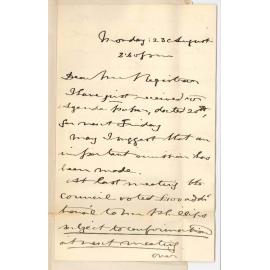 Monday: 23 August
2.40 pm
Dear Mr Registrar
I have just received
Agenda Paper, dated 20th,
for next Friday
May I suggest that an
important omission has
been made.
At last meeting the
Council voted £100 addi
tional to Mr Phillips
subject to confirmation
at next meeting
over